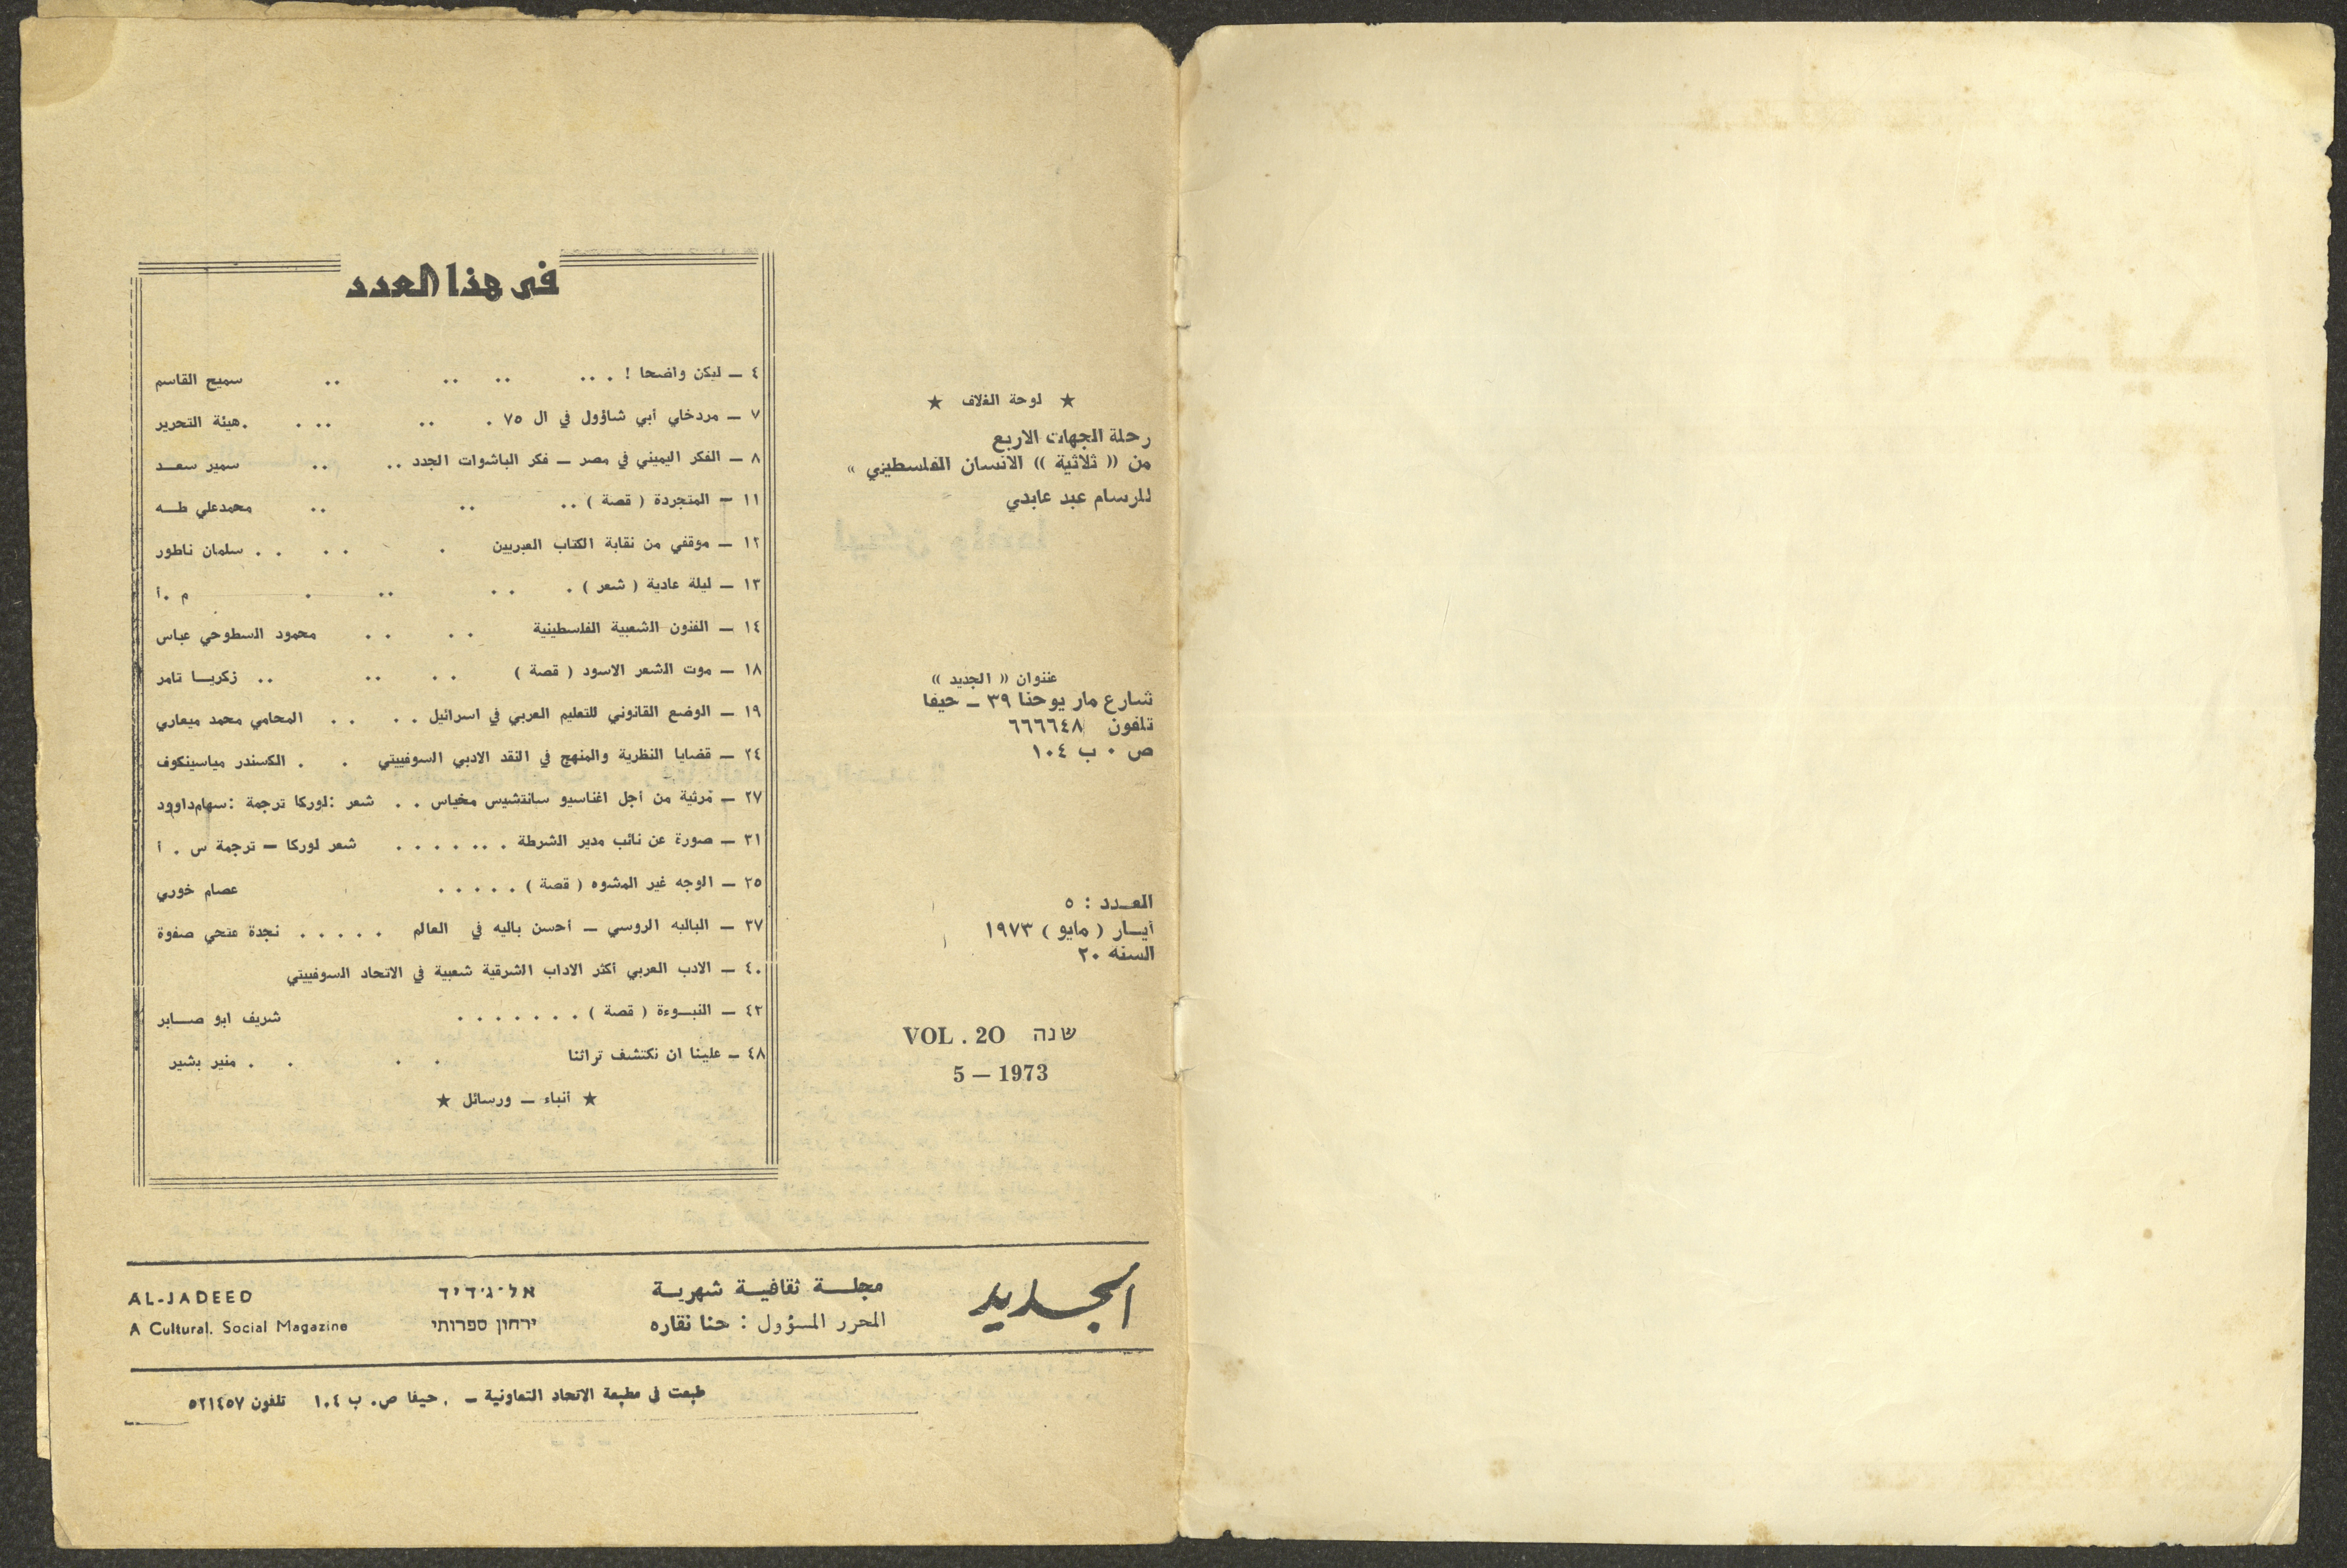 ★ لوحة الغلاف ★
رحلة الجهات الاربع
من « ثلاثية » الانسان الفلسطيني »
للرسام عبد عابدي
عنوان « الجديد »
شارع مار يوحنا ٣٩ ــ حيفا
تلفون ٦٦٦٦٤٨
ص ٠ ب ١٠٤
العـدد : ٥
آيـار ( مايو ) ١٩٧٣
السنة ٢٠
VOL . 20 שנה
5 — 1973
في هذا العدد
٤ ــ ليكن واضحا ! . .. .. .. .. سميح القاسم
٧ ــ مردخاي أبي شاؤول في ال ٧٥ . .. .. . .هيئة التحرير
٨ ــ الفكر اليميني في مصر ــ فكر الباشوات الجدد .. .. سمير سعـد
١١ ــ المتجردة ( قصة ) .. .. .. محمدعلي طـه
١٢ ــ موقفي من نقابة الكتاب العبريين . . . . . سلمان ناطور
١٣ ــ ليلة عادية ( شعر ) . . . .. . م .أ
١٤ ــ الفنون الشعبية الفلسطينية . . . . . محمود السطوحي عباس
١٨ ــ موت الشعر الاسود ( قصة ) . . .. .. زكريـا تامر
١٩ ــ الوضع القانوني للتعليم العربي في اسرائيل . . . . المحامي محمد ميعاري
٢٤ ــ قضايا النظرية والمنهج في النقد الادبي السوفييتي . . الكسندر مياسينكوف
٢٧ ــ مرثية من أجل اغناسيو سانتشيس مخياس . . شعر :لوركا ترجمة :سهام‌داوود
٣١ ــ صورة عن نائب مدير الشرطة . .. . . . . شعر لوركا ــ ترجمة س . أ
٣٥ ــ الوجه غير المشوه ( قصة ) . . . . . عصام خوري
٣٧ ــ الباليه الروسي ــ أحسن باليه في العالم . . . . . نجدة فتحي صفوة
٤٠ ــ الادب العربي أكثر الاداب الشرقية شعبية في الاتحاد السوفييتي
٤٢ ــ النبـوءة ( قصة ) . . . . . . . شريف ابو صـابر
٤٨ ــ علينا ان نكتشف تراثنا . . . . منير بشير
★ أنباء ــ ورسائل ★
الجديد
مجلـة ثقافيـة شهريـة
المحرر المسؤول : حنا نقاره
אל־ג׳דיד
ירחון ספרותי
AL-JADEED
A Cultural. Social Magazine
طبعت في مطبعة الاتحاد التعاونية ــ . حيفا ص. ب ١٠٤ تلفون ٥٢١٤٥٧